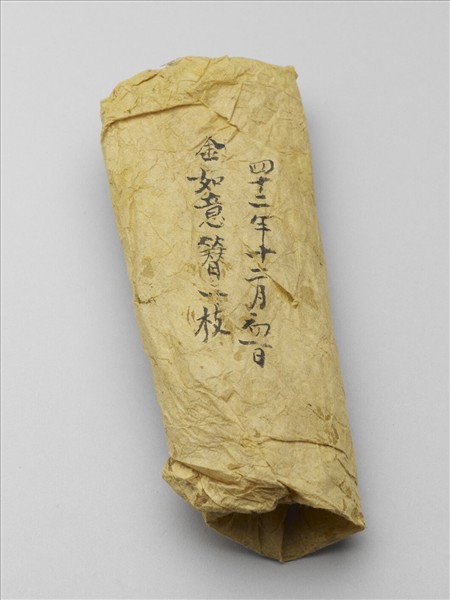 四十二年十二月初一日
金如意簪一枝